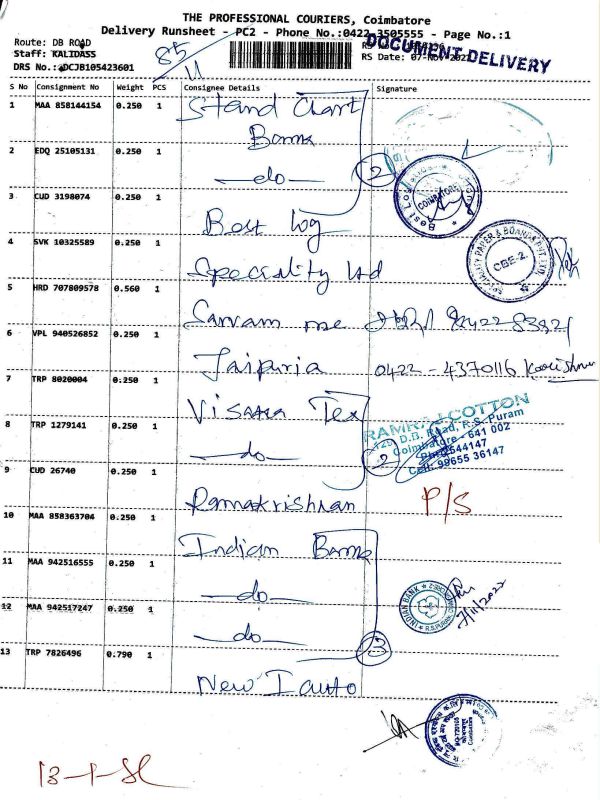 THE PROFESSIONAL COURIERS, Coimbatore
Delivery Runsheet - PC2 - Phone No.:0422-3505555 - Page No.:1
Route: DB ROAD
Staff: KALIDASS
RS Date: 07-Nov-2022
DRS No.: DCJB105423601
DOCUMENT DELIVERY
85/11
S No Consignment No Weight PCS Consignee Details Signature
1 MAA 858144154 0.250 1 Stand Chart
Bank
2 EDQ 25105131 0.250 1 —do—
2
3 CUD 3198074 0.250 1 Best log
COIMBATORE
4 SVK 10325589 0.250 1 Speciality ltd
SPECIALITY PAPER & BOARDS PVT. LTD.
CBE-2.
5 HRD 707809578 0.560 1 Sarvam
6 VPL 940526852 0.250 1 Jaipuria 0422-4370116
7 TRP 8020004 0.250 1 Visaka Tex
8 TRP 1279141 0.250 1 —do—
2
RAMRAJ COTTON
129 D.B. Road, R.S. Puram
Coimbatore - 641 002
Ph: 2544147
Cell: 99655 36147
9 CUD 26740 0.250 1 Ramakrishnan P/S
10 MAA 858363704 0.250 1 Indian Bank
11 MAA 942516555 0.250 1 —do—
INDIAN BANK
7/11/2022
12 MAA 942517247 0.250 1 —do—
3
13 TRP 7826496 0.790 1 New I auto